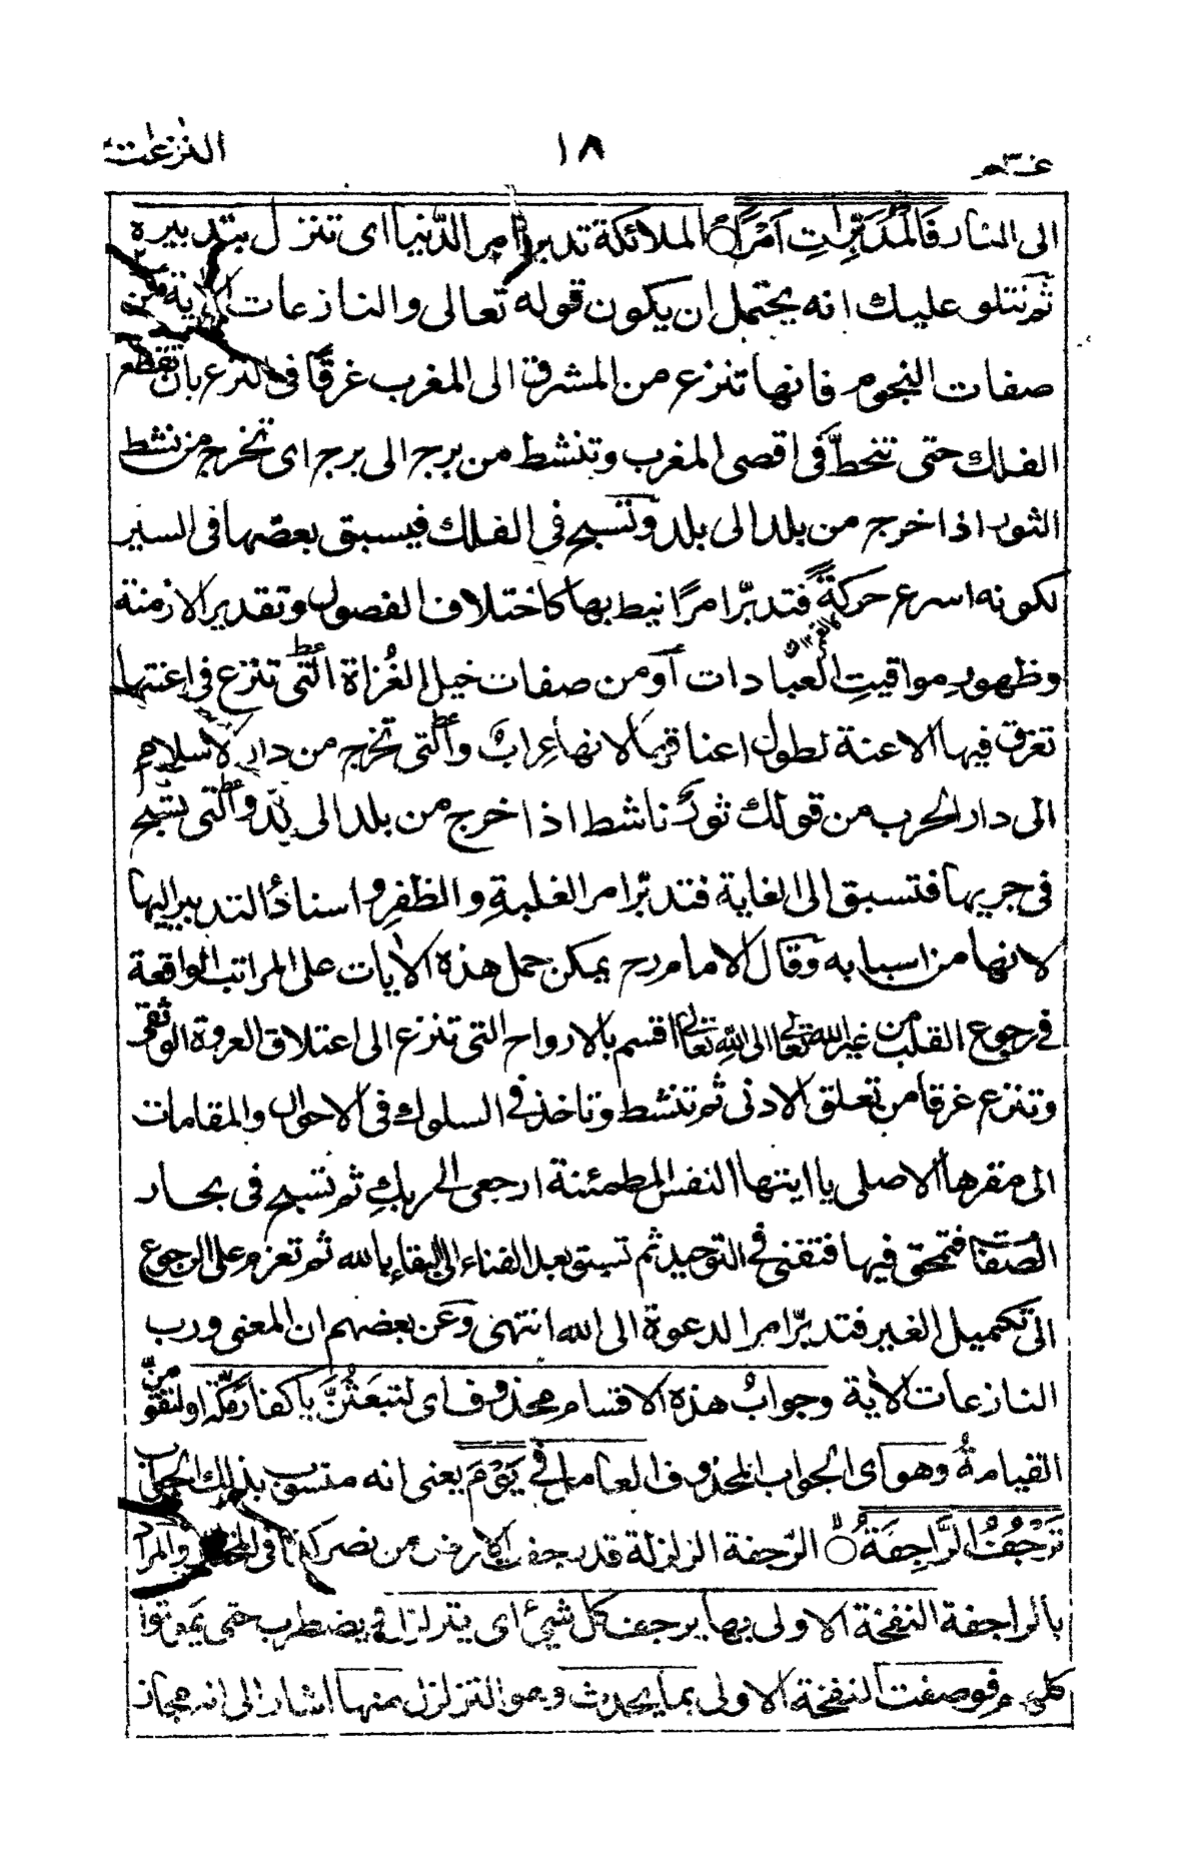 عم ١٨ النزعت
الى النار فَالْمُدَبِّرَاتِ اَمْرًا الملائكة تدبر امر الدّنيا اى تنزل بتدبيره
ثم نتلو عليك انه يحتمل ان يكون قوله تعالى والنازعات الاية من
صفات النجوم فانها تنزع من المشرق الى المغرب غرقًا فى النزع بان تقطع
الفلك حتى تنحطّ فى اقصى المغرب وتنشط من برج الى برج اى تخرج من نشط
الثور اذا خرج من بلد الى بلد وتسبح فى الفلك فيسبق بعضها فى السير
لكونه اسرع حركةً فتدبّر امرًا نيط بها كاختلاف الفصول وتقدير الازمنة
وظهور مواقيتِ العبادات آو من صفات خيل الغُزاة الّتى تنزع فى اعنتها
تغرق فيها الاعنة لطول اعناقها لانها عِرابٌ والّتى تخرج من دار الاسلام
الى دار الحرب من قولك ثورٌ ناشط اذا خرج من بلد الى بلد والّتى تسبح
فى جريها فتسبق الى الغاية فتدبّر امر الغلبةِ والظفرِ واسنادُ التدبير اليها
لانها من اسبابه وقال الامام رح يمكن حمل هذه الأيات على المراتب الواقعة
فى رجوع القلب من غير الله تعالى الى اللهِ تعالى اقسم بالارواح التى تنزع الى اعتلاق العروة الوثقى
وتنزع غرقا من تعلق الادنى ثم تنشط وتاخذ فى السلوك فى الاحوال والمقامات
الى مقرها الاصلى يا ايتها النفس المطمئنة ارجعى الى ربكِ ثم تسبح فى بحار
الصفات فتمحق فيها فتفنى فى التوحيد ثم تسبق بعد الفناء الى البقاء بالله ثم تعزم على الرجوع
الى تكميل الغير فتدبّر امر الدعوة الى الله انتهى وعن بعضهم ان المعنى ورب
النازعات الأية وجوابُ هذه الاقسام محذوف اى لتبعَثُنَّ يا كفار مكّة او لتقومنّ
القيامةُ وهو اى الجواب المحذوف العامل فى يَوْمَ يعنى انه منتسب بذلك الجواب
تَرْجُفُ الرَّاجِفَةُ الرّجفة الزلزلة قد رجفت الارض من نصر كذا فى والمراد
بالراجفة النفخة الاولى بها يرجف كل شئ اى يتزلزل فيضطرب حتى يَموتوا
كلهم فوصفت النفخة الاولى بما يحدث وهو التزلزل منها اشار الى انه مجاز